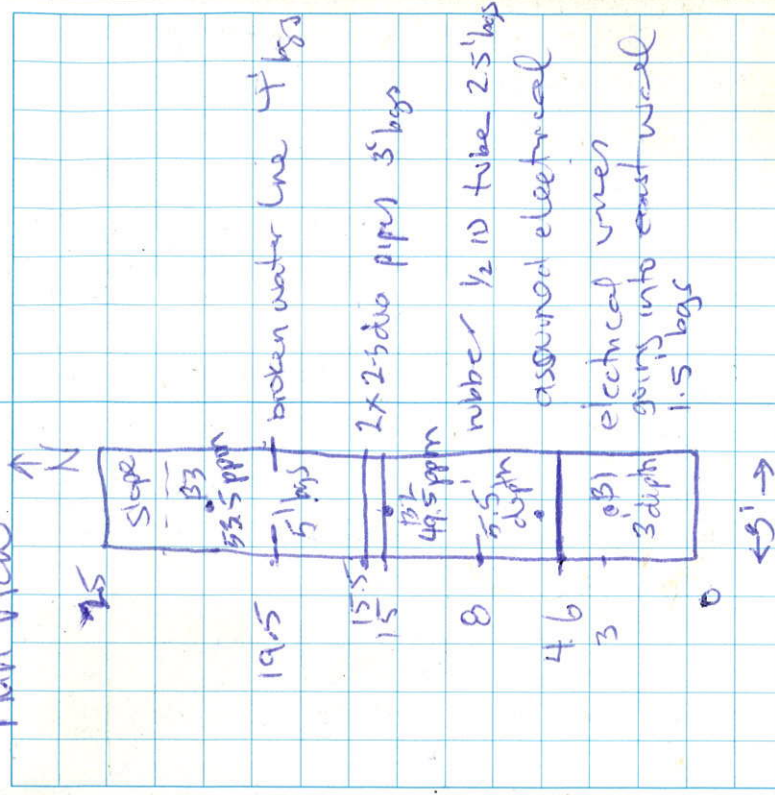 Plan View
N
25
Slope
B3
53.5 ppm
19.5
broken water line 4' bgs
5' bgs
15.5
15
2x 2-3 dia pipes 3' bgs
B2
49.5 ppm
8
rubber 1/2 ID tube 2.5' bgs
5.5'
depth
assumed electrical
4.6
3
B1
3' depth
electrical wires
going into east wall
1.5' bgs
0